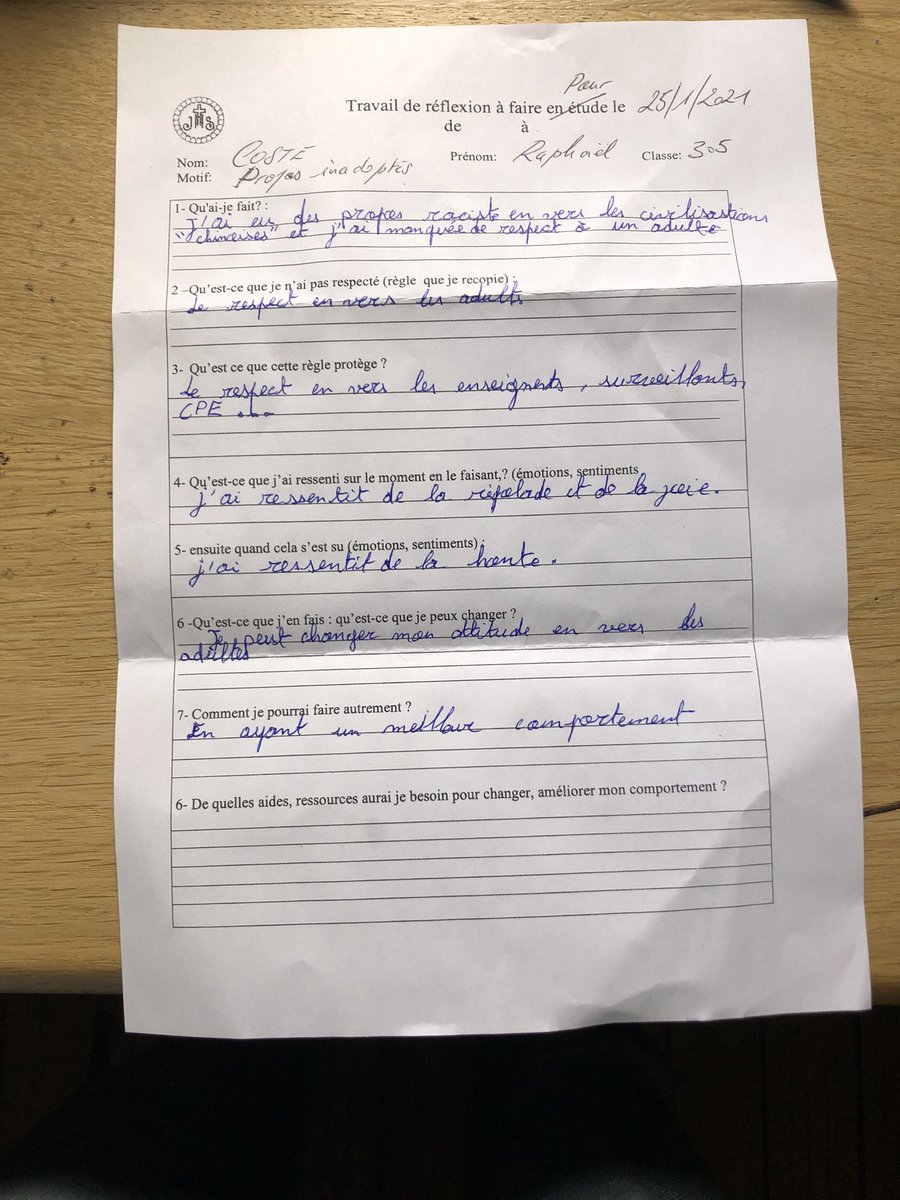 JHS
Pour
Travail de réflexion à faire en étude le 25/1/2021
de à
Nom: COSTE Prénom: Raphaël Classe: 305
Motif: Propos inadaptés
1- Qu'ai-je fait? :
J'ai eu des propos raciste en vers les civilisastions
"chinoises" et j'ai manquée de respect à un adulte
2 –Qu'est-ce que je n'ai pas respecté (règle que je recopie) :
Le respect en vers les adults
3- Qu'est ce que cette règle protège ?
Le respect en vers les enseignents, surveillants,
CPE ....
4- Qu'est-ce que j'ai ressenti sur le moment en le faisant,? (émotions, sentiments
j'ai ressentit de la rigolade et de la joie.
5- ensuite quand cela s'est su (émotions, sentiments) :
j'ai ressentit de la honte.
6 -Qu'est-ce que j'en fais : qu'est-ce que je peux changer ?
Je peut changer mon attitude en vers les
adultes
7- Comment je pourrai faire autrement ?
En ayant un meillour comportement
6- De quelles aides, ressources aurai je besoin pour changer, améliorer mon comportement ?